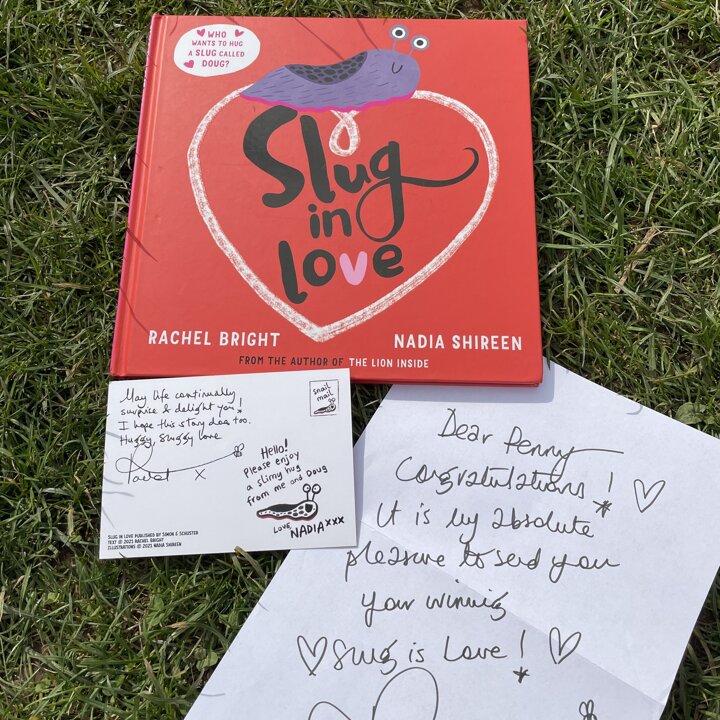 WHO
WANTS TO HUG
A SLUG CALLED
DOUG?
Slug
in
love
RACHEL BRIGHT
NADIA SHIREEN
FROM THE AUTHOR OF THE LION INSIDE
May life continually
surprise & delight you!
I hope this story does too.
Huggy, Sluggy love
Rachel x
snail
mail
Hello!
Please enjoy
a slimy hug
from me and Doug
LOVE,
NADIA xxx
SLUG IN LOVE PUBLISHED BY SIMON & SCHUSTER
TEXT © 2021 RACHEL BRIGHT
ILLUSTRATIONS © 2021 NADIA SHIREEN
Dear Penny
Congratulations!
It is my absolute
pleasure to send you
your winning
Slug is Love!